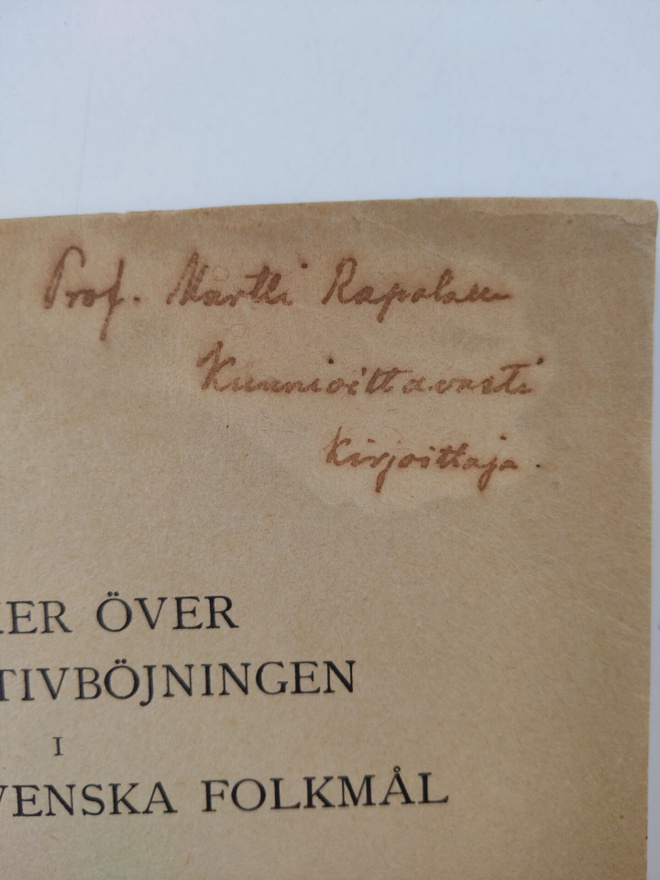 Prof. Martti Rapolalle
Kunnioittavasti
Kirjoittaja.
KER ÖVER
TIVBÖJNINGEN
I
VENSKA FOLKMÅL